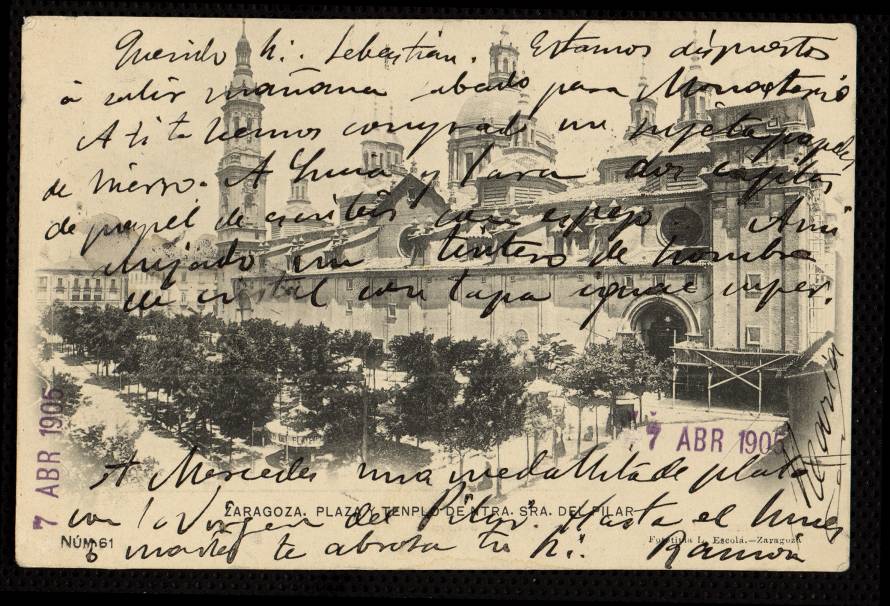 Querido h. Sebastián. Estamos dispuestos
á salir mañana sábado para Monasterio
A ti te hemos comprado un sujeta papeles
de hierro. A Luna y Lara dos cajitas
de papel de escribir con espejo. A mi
ahijado un tintero de hombre
de cristal con tapa igual,
7 ABR 1905
7 ABR 1905
María
A Mercedes una medallita de plata
con la Virgen del Pilar. Hasta el lunes
ZARAGOZA. PLAZA Y TENPLO DE NTRA. SRA. DEL PILAR
NÚM 61
ó martes te abrasa tu h. Ramón
Fototipia L. Escolá.—Zaragoza